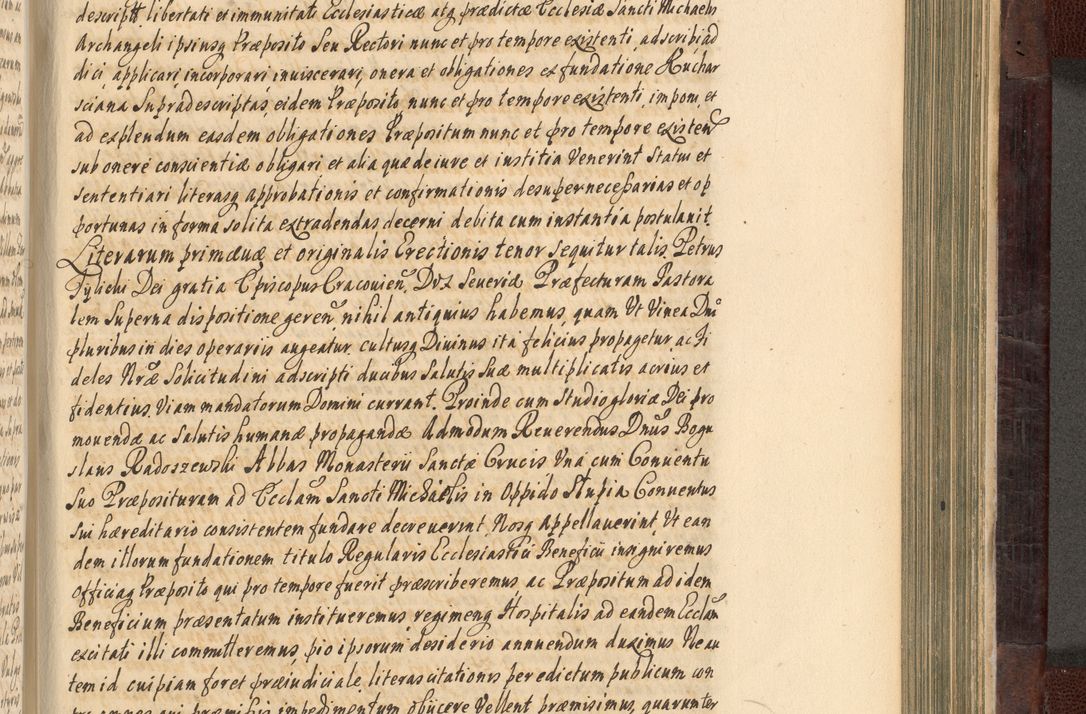 descriptt. libertati et immunitati Ecclesiasticæ atq prædictæ Ecclesiæ Sancti Michaelis
Archangeli ipsiusq Præposito Seu Rectori nunc et pro tempore existenti, adscribi, ad
dici, applicari, incorporari, inuiscerari, onera et obligationes ex fundatione Ruchar
sciana Supradescriptas, eidem Præposito nunc et pro tempore existenti, imponi, et
ad explendum easdem obligationes Præpositum nunc et pro tempore existen
sub onere conscientiæ obligari et alia quæ de iure et institia Venerint Statui et
sententiari literasq approbationis et confirmationis desuper necessarias et op
portunas in forma solita extradendas decerni debita cum instantia postulauit.
Literarum primæuæ et originalis Erectionis tenor sequitur talis. Petrus
Tylicki Dei gratia Episcopus Cracouien, Dux Seueriæ Præfecturam Pastora
lem Superna dispositione geren, nihil antiquius habemus, quam Ut Vinea Dni
pluribus in dies operariis augeatur, cultusq Diuinus ita felicius propagetur, ac Fi
deles Nræ Solicitudini adscripti ducibus Salutis Suæ multiplicatis acrius et
fidentius, Viam mandatorum Domini currant. Proinde cum Studio gloriæ Dei pro
mouendæ ac Salutis humanæ propagandæ Admodum Reuerendus Dnus Bogu
slaus Radoszewski Abbas Monasterii Sanctæ Crucis, Una cum Conuentu
Suo Præposituram ad Ecclam Sancti Michaelis in Oppido Stupia Conuentus
Sui hæreditario consistentem fundare decreuerint, Nosq Appellauerint, Ut ean
dem illorum fundationem titulo Regularis Ecclesiastici Beneficii insigniremus
officiaq Præposito qui pro tempore fuerit præscriberemus ac Præpositum ad idem
Beneficium præsentatum institueremus regimenq Hospitalis ad eandem Ecclam
excitati illi committeremus, pio ipsorum desiderio annuendum duximus Ne au
tem id cuipiam foret præiudiciale, literas citationis per edictum publicum con
tra omnes qui præmissis impedimentum obiicere Vellent præmisimus, quarum ter